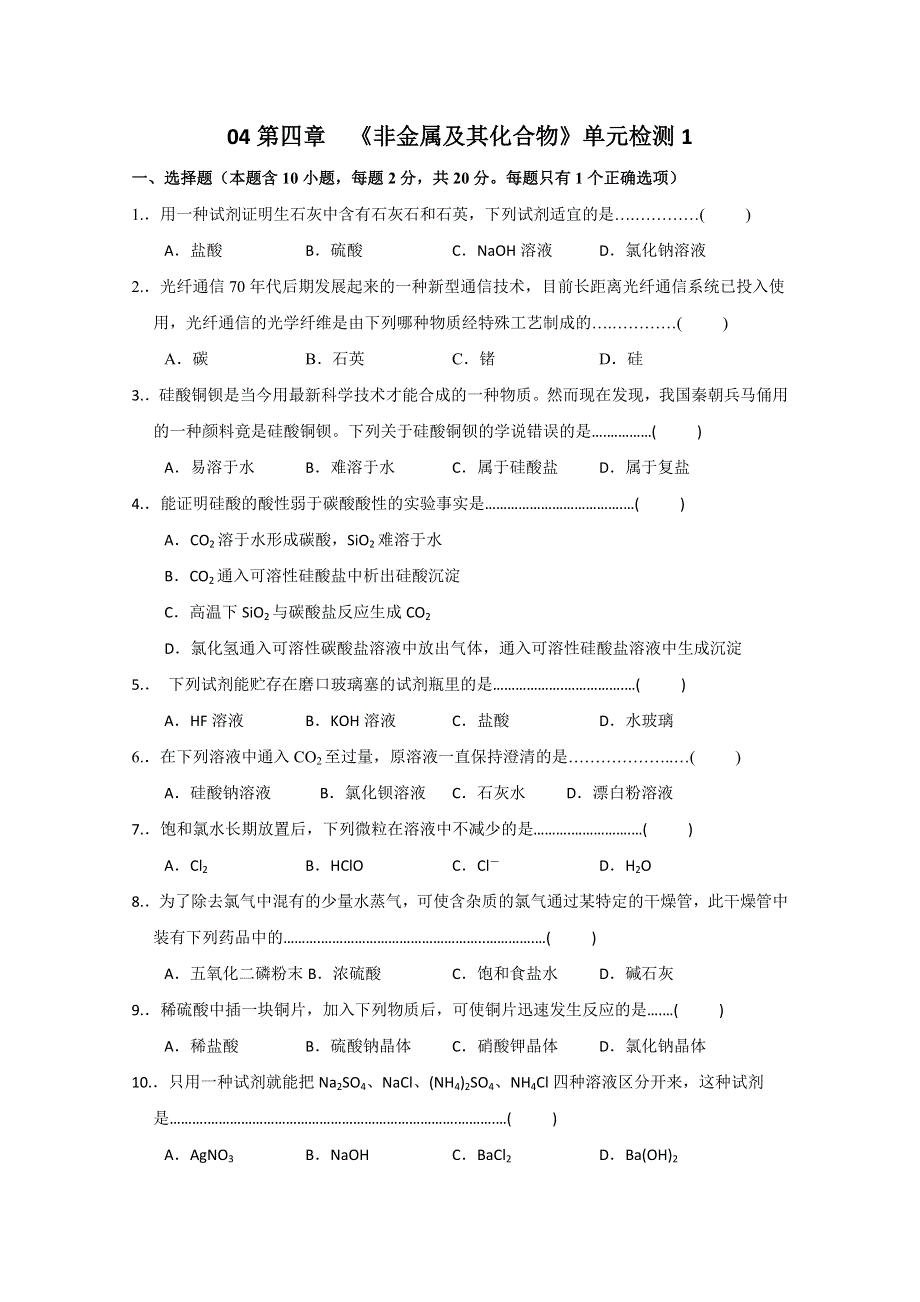 04 第四章　《非金属及其化合物》单元检测 1
一、选择题（本题含 10 小题，每题 2 分，共 20 分。每题只有 1 个正确选项）
1.．用一种试剂证明生石灰中含有石灰石和石英，下列试剂适宜的是……………( )
A．盐酸 B．硫酸 C．NaOH 溶液 D．氯化钠溶液
2.．光纤通信 70 年代后期发展起来的一种新型通信技术，目前长距离光纤通信系统已投入使
用，光纤通信的光学纤维是由下列哪种物质经特殊工艺制成的……………( )
A．碳 B．石英 C．锗 D．硅
3.．硅酸铜钡是当今用最新科学技术才能合成的一种物质。然而现在发现，我国秦朝兵马俑用
的一种颜料竟是硅酸铜钡。下列关于硅酸铜钡的学说错误的是……………( )
A．易溶于水 B．难溶于水 C．属于硅酸盐 D．属于复盐
4.．能证明硅酸的酸性弱于碳酸酸性的实验事实是…………………………………( )
A．CO₂ 溶于水形成碳酸，SiO₂ 难溶于水
B．CO₂ 通入可溶性硅酸盐中析出硅酸沉淀
C．高温下 SiO₂ 与碳酸盐反应生成 CO₂
D．氯化氢通入可溶性碳酸盐溶液中放出气体，通入可溶性硅酸盐溶液中生成沉淀
5.． 下列试剂能贮存在磨口玻璃塞的试剂瓶里的是………………………………( )
A．HF 溶液 B．KOH 溶液 C．盐酸 D．水玻璃
6.．在下列溶液中通入 CO₂ 至过量，原溶液一直保持澄清的是…………………..…( )
A．硅酸钠溶液 B．氯化钡溶液 C．石灰水 D．漂白粉溶液
7.．饱和氯水长期放置后，下列微粒在溶液中不减少的是…………………………( )
A．Cl₂ B．HClO C．Cl⁻ D．H₂O
8.．为了除去氯气中混有的少量水蒸气，可使含杂质的氯气通过某特定的干燥管，此干燥管中
装有下列药品中的……………………………………………………………( )
A．五氧化二磷粉末 B．浓硫酸 C．饱和食盐水 D．碱石灰
9.．稀硫酸中插一块铜片，加入下列物质后，可使铜片迅速发生反应的是…….( )
A．稀盐酸 B．硫酸钠晶体 C．硝酸钾晶体 D．氯化钠晶体
10.．只用一种试剂就能把 Na₂SO₄、NaCl、(NH₄)₂SO₄、NH₄Cl 四种溶液区分开来，这种试剂
是………………………………………………………………………………( )
A．AgNO₃ B．NaOH C．BaCl₂ D．Ba(OH)₂